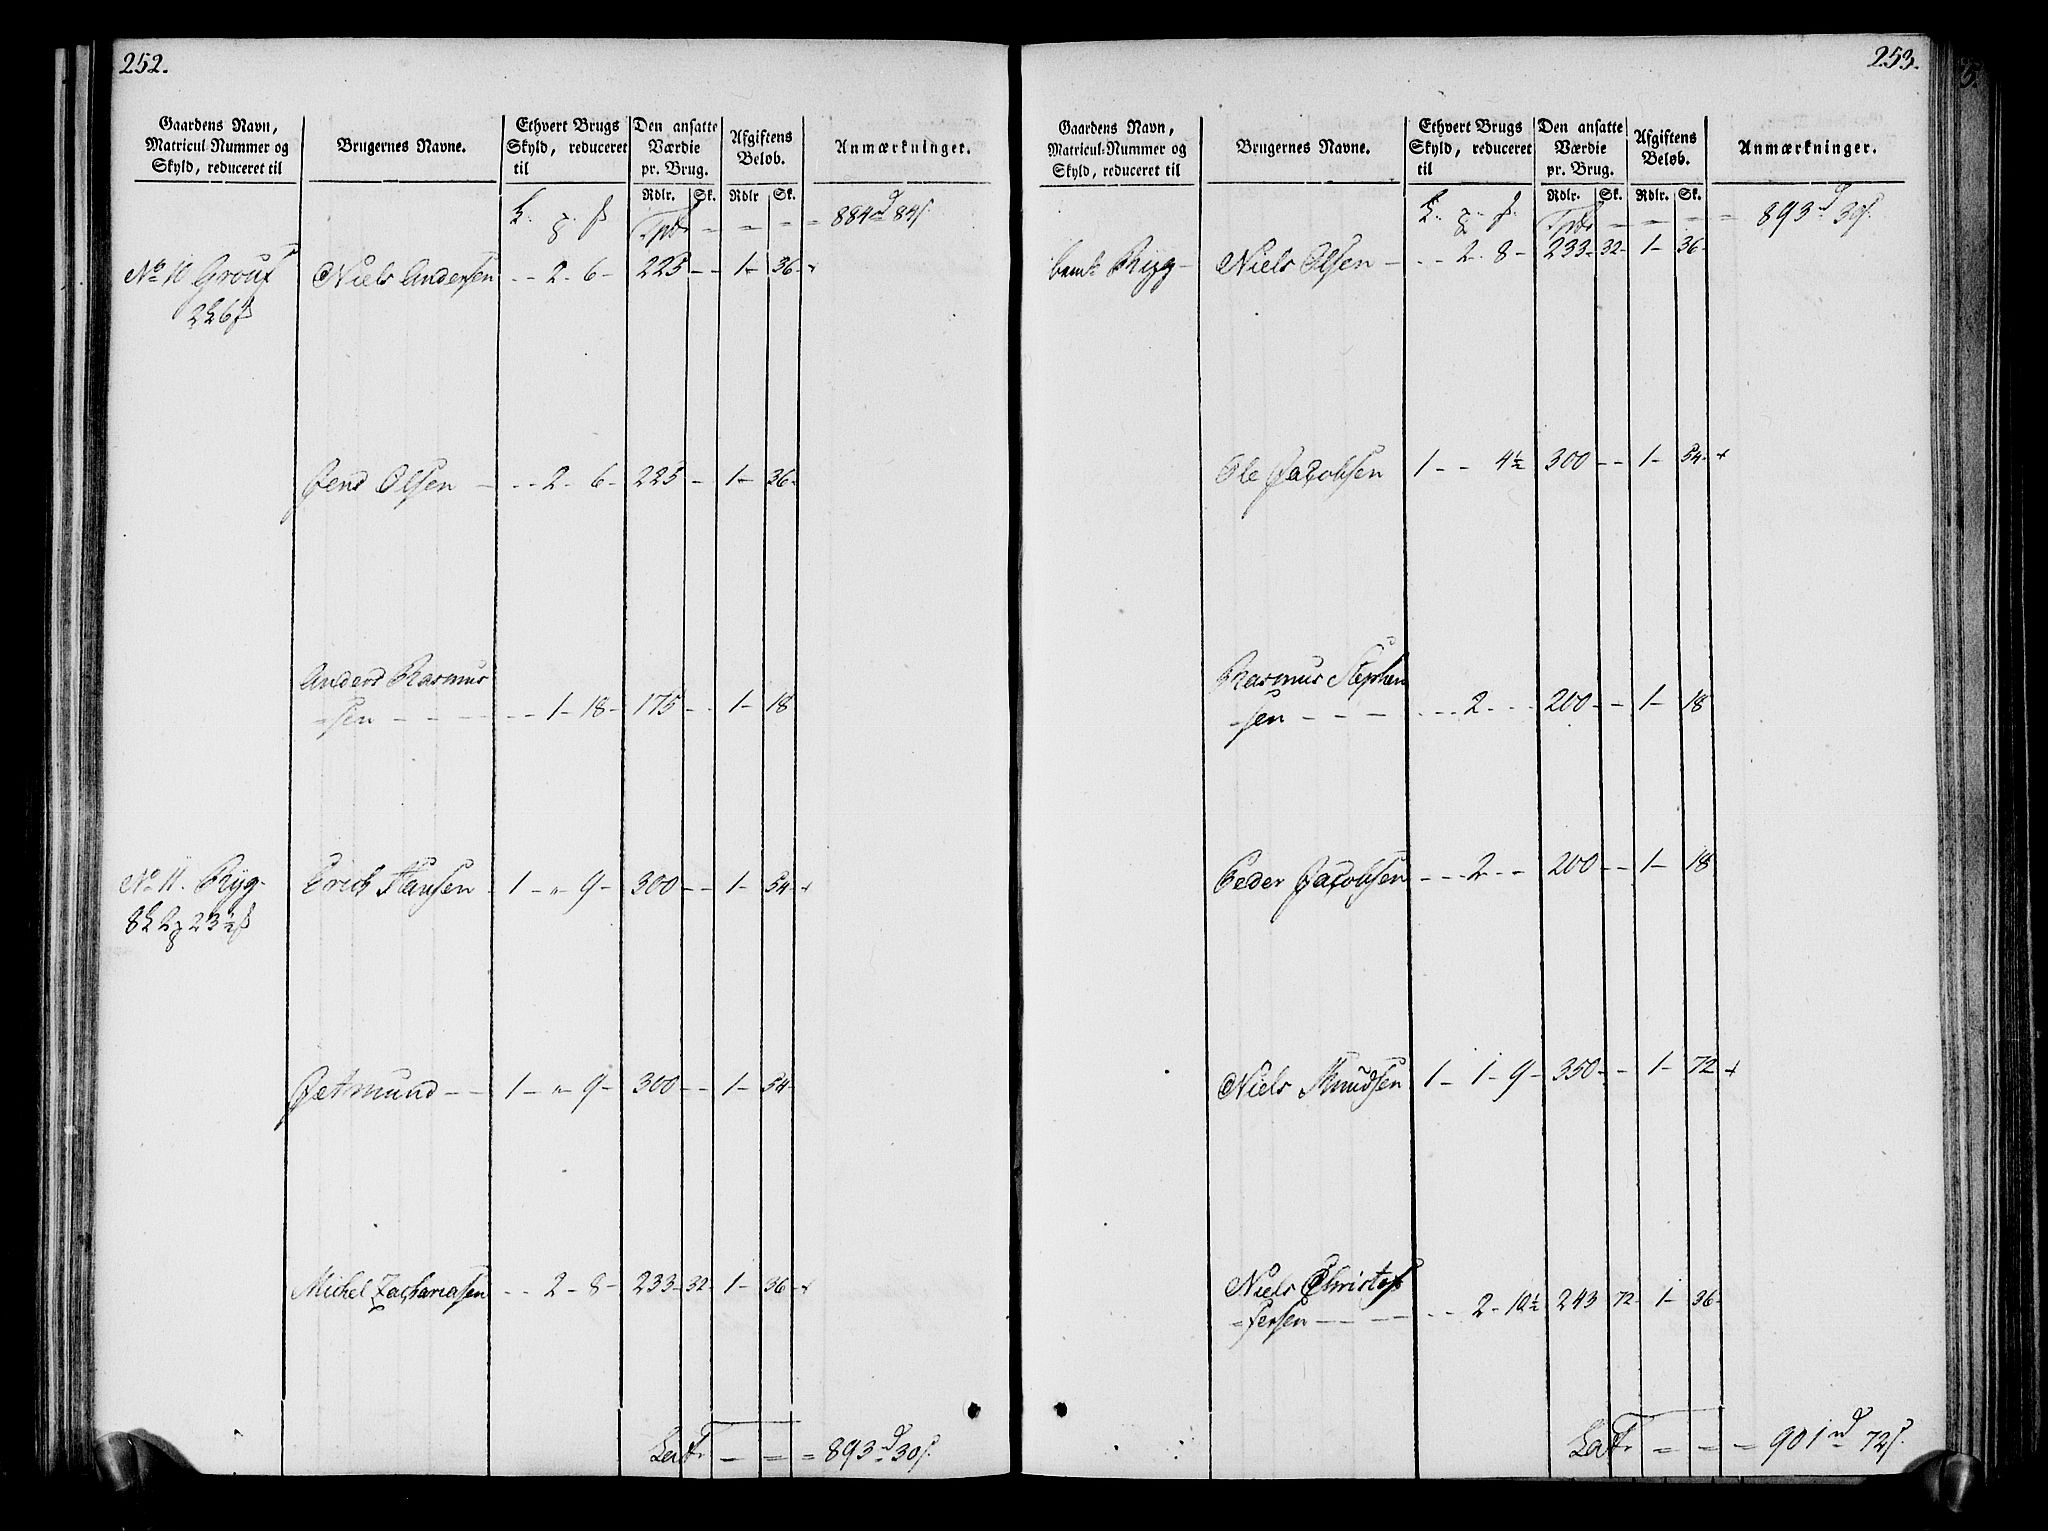 252.
Gaardens Navn, Matricul-Nummer og Skyld, reduceret til
Brugernes Navne.
Ethvert Brugs Skyld, reduceret til
Den ansatte Værdie pr. Brug.
Afgiftens Beløb.
Anmærkninger.
Rdlr. Sk. Rdlr Sk.
Tpt. - - - - 884rd 84s.
No 10 Grouf Niels Andersen - - 2 - 6 - 225 - - 1 - 36 -
Jens Olsen - - - 2 - 6 - 225 - 1 - 36 -
Anders Rasmus
-sen - - - - - 1 - 18 - 175 - - 1 - 18
No 11. Ryg- Erich Hansen - 1 - " 9 - 300 - - 1 - 54 -
Je Amund - - 1 - " 9 - 300 - - 1 - 54 -
Michel Zachariasen - - 2 - 8 - 233 - 32 - 1 - 36 -
Lat. - - - 893d 30s.
253.
Gaardens Navn, Matricul-Nummer og Skyld, reduceret til
Brugernes Navne.
Ethvert Brugs Skyld, reduceret til
Den ansatte Værdie pr. Brug.
Afgiftens Beløb.
Anmærkninger.
Rdlr. Sk. Rdlr. Sk.
Tpt. - - - - 893d 30s.
bemte Ryg - Niels Olsen - - - 2 - 8 - 233 - 32 - 1 - 36 -
Ole Jacobsen 1 - - 4½ 300 - - 1 - 54 -
Rasmus Stephen
-sen - - - - - - 2 - - - 200 - - 1 - 18
Peder Jacobsen - - - 2 - - 200 - - 1 - 18
Niels Knudsen 1 - 1 - 9 - 350 - - 1 - 72 -
Niels Christof
-fersen - - - - - 2 - 10½ 243 72 - 1 - 36 -
Lat. - - - 901rd 72s.